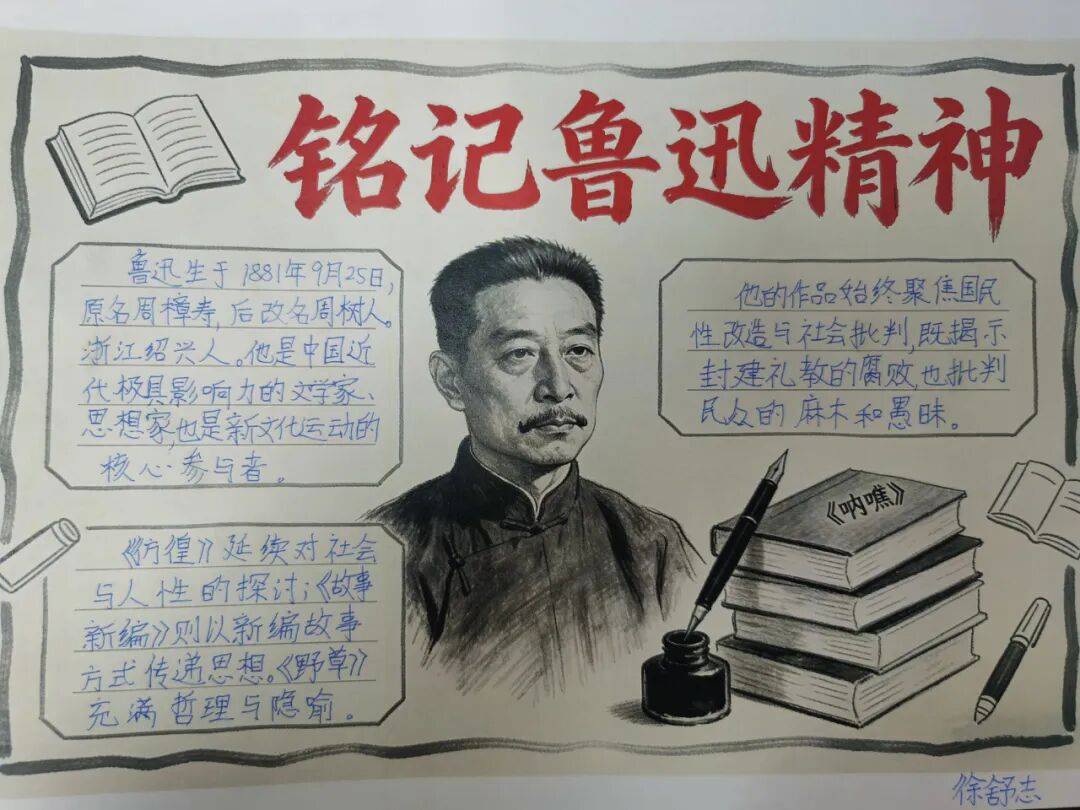 铭记鲁迅精神
鲁迅生于1881年9月25日,
原名周樟寿,后改名周树人。
浙江绍兴人。他是中国近
代极具影响力的文学家、
思想家,也是新文化运动的
核心参与者。
他的作品始终聚焦国民
性改造与社会批判,既揭示
封建礼教的腐败,也批判
民众的麻木和愚昧。
《彷徨》延续对社会
与人性的探讨;《故事
新编》则以新编故事
方式传递思想。《野草》
充满哲理与隐喻。
《呐喊》
徐舒志